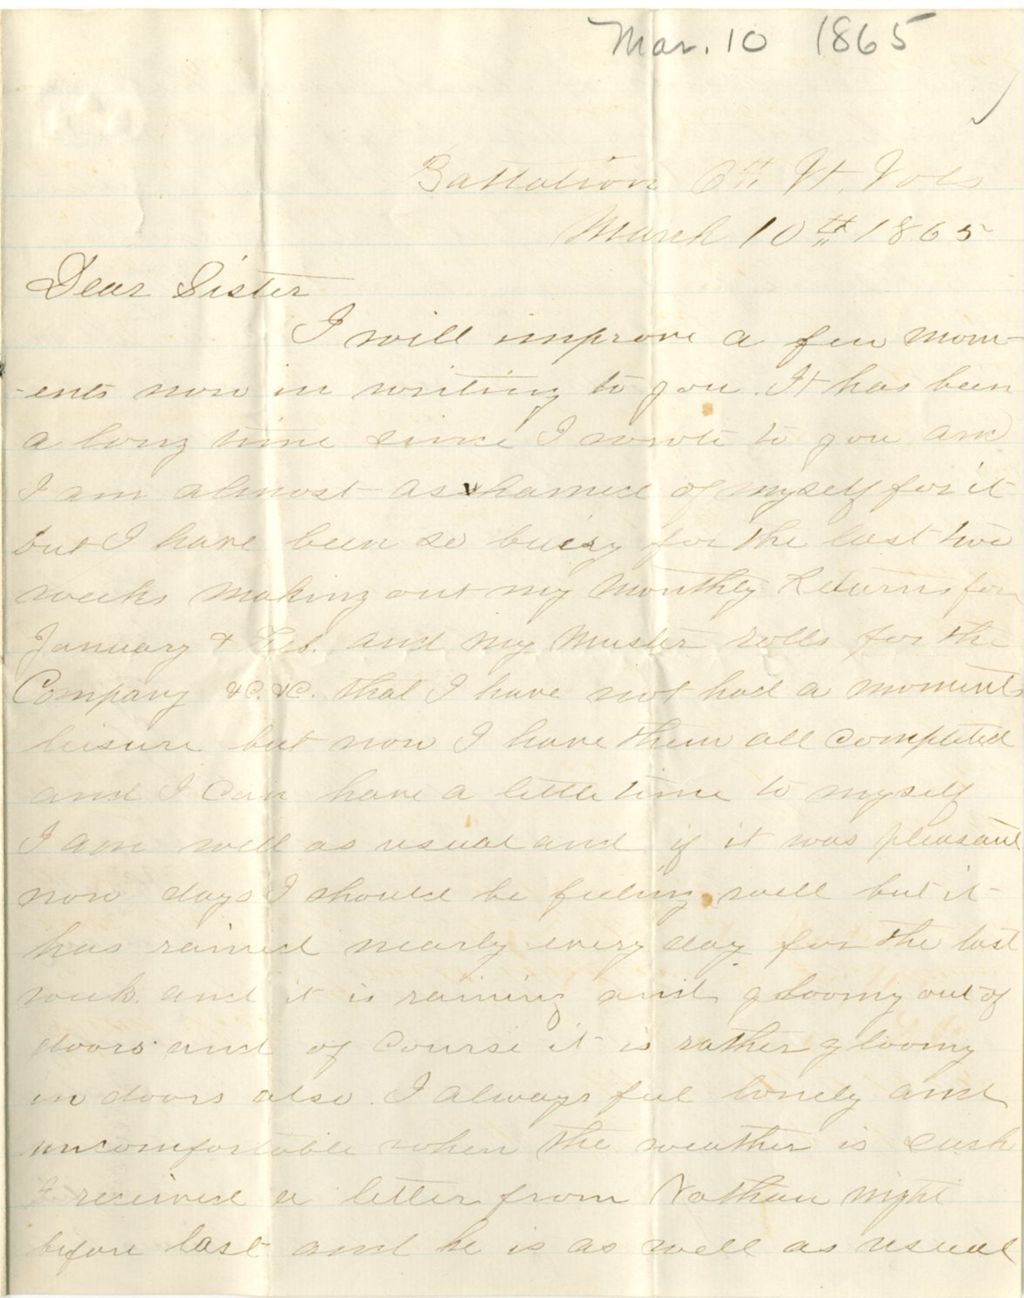 Mar. 10 1865
Battalion 6th Vt. Vols
March 10th 1865
Dear Sister
I will improve a few mom-
-ents now in writing to you. It has been
a long time since I wrote to you and
I am almost ashamed of myself for it
but I have been so busy for the last two
weeks making out my Monthly Returns for
January & Feb. and my Muster rolls for the
Company &C. &C. that I have not had a moments
leisure but now I have them all completed
and I can have a little time to myself
I am well as usual and if it was pleasant
now days I should be feeling well but it
has rained nearly every day for the last
week and it is raining and gloomy out of
doors and of course it is rather gloomy
in doors also. I always feel lonely and
uncomfortable when the weather is such
I received a letter from Nathan night
before last and he is as well as usual